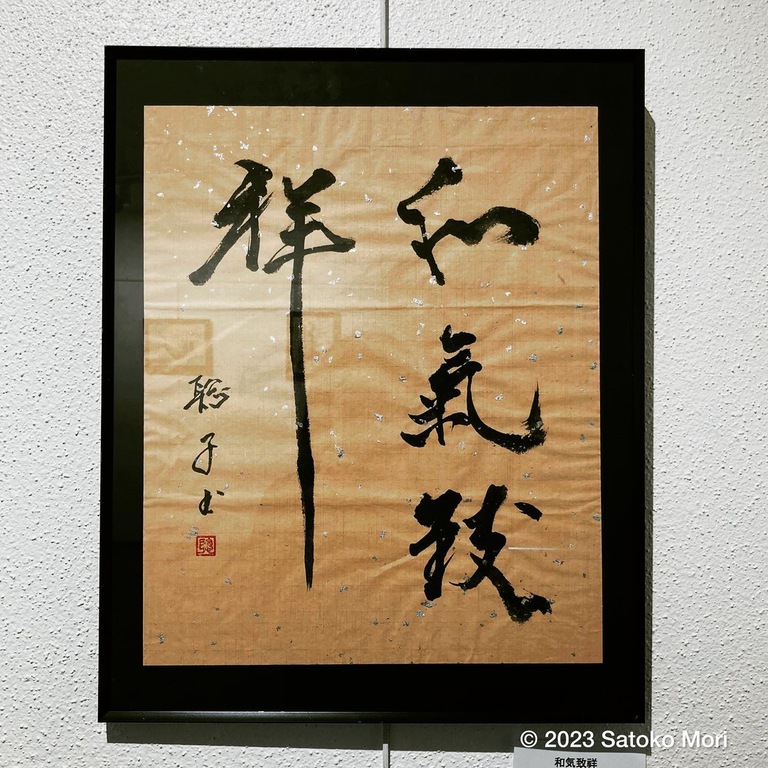 和氣致
祥
聡子書
© 2023 Satoko Mori
和気致祥